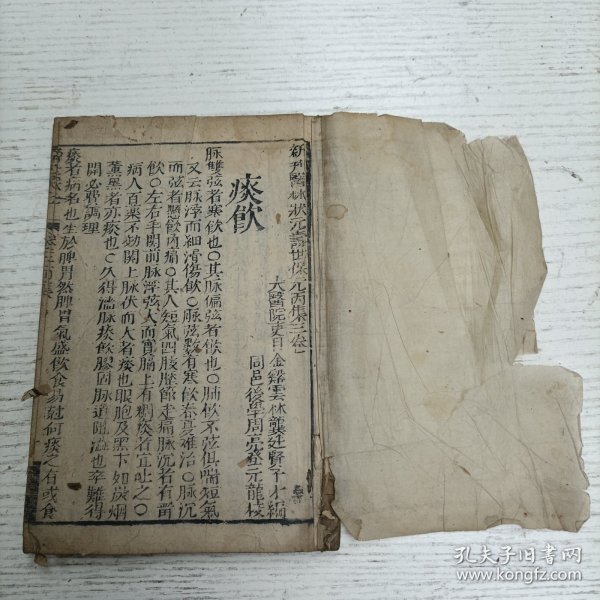 新刊醫林狀元壽世保元丙集三卷
太醫院吏目金谿雲林龔廷賢子才編
同邑後學周亮登元龍校
痰飲
脉雙弦者寒飲也○其脉偏弦者飲也○肺飲不弦俱喘短氣
又云脉浮而細滑傷飲○脉弦數有寒飲春夏難治○脉沉
而弦者懸飲內痛○其人短氣四肢歷節走痛脉沉者有留
飲○左右手関前脉浮弦大而實膈上有稠痰者宜吐之○
病人百藥不効関上脉伏而大者痰也眼胞及黑下如炭烟
薰黑者亦痰也○久得濇脉痰飲膠固脉道阻濇也卒難得
開必費調理
痰者病名也生於脾胃然脾胃氣盛飲食易尅何痰之有或食
孔夫子旧书网
www.kongfz.com